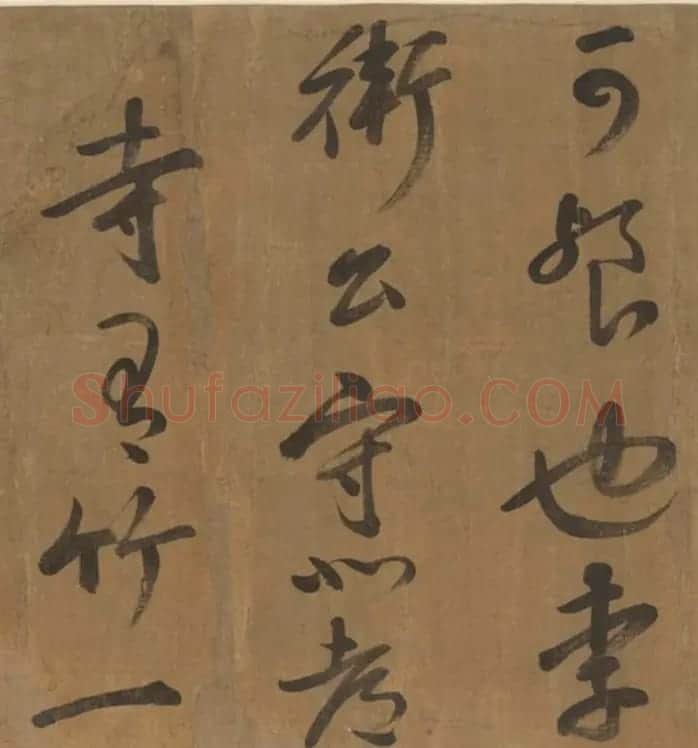 可也李
衛公守北都
寺有竹一
Shufaziliao.COM